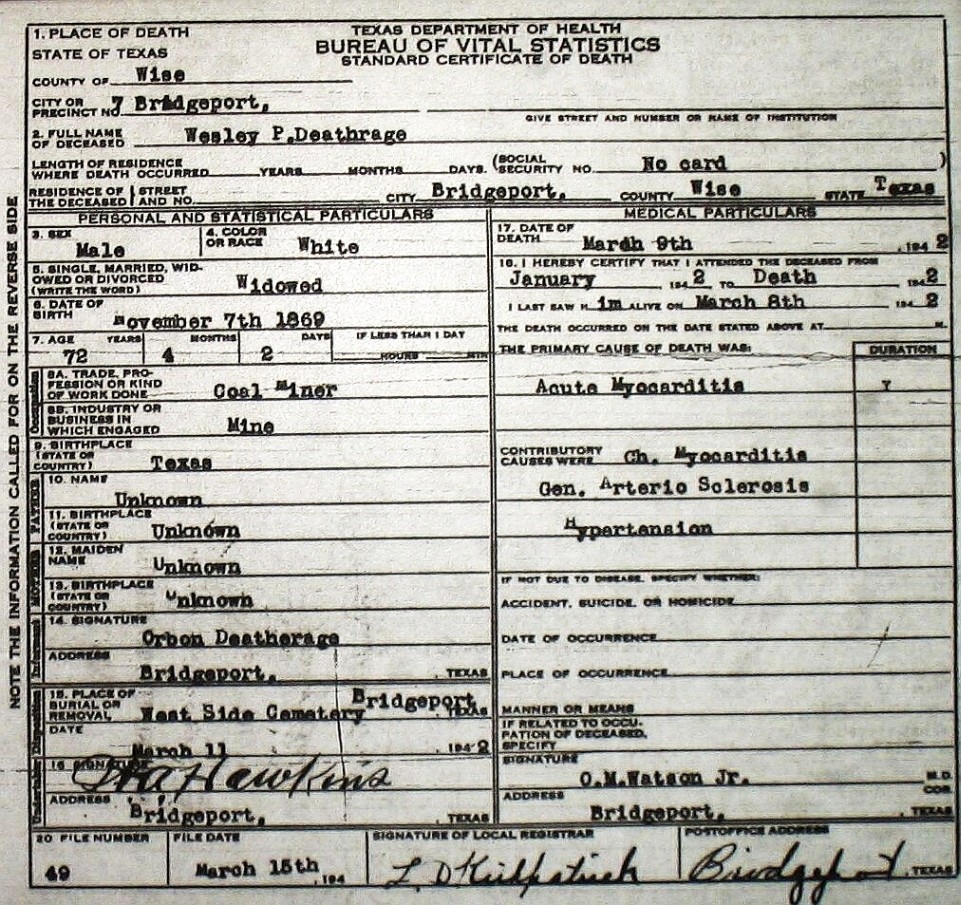 TEXAS DEPARTMENT OF HEALTH
BUREAU OF VITAL STATISTICS
STANDARD CERTIFICATE OF DEATH
NOTE THE INFORMATION CALLED FOR ON THE REVERSE SIDE
1. PLACE OF DEATH
STATE OF TEXAS
COUNTY OF Wise
CITY OR PRECINCT NO 7 Bridgeport,
GIVE STREET AND NUMBER OR NAME OF INSTITUTION
2. FULL NAME OF DECEASED Wesley P.Deathrage
LENGTH OF RESIDENCE WHERE DEATH OCCURRED YEARS MONTHS DAYS. (SOCIAL SECURITY NO. No card )
RESIDENCE OF THE DECEASED STREET AND NO. CITY Bridgeport, COUNTY Wise STATE Texas
PERSONAL AND STATISTICAL PARTICULARS
3. SEX Male
4. COLOR OR RACE White
5. SINGLE, MARRIED, WIDOWED OR DIVORCED (WRITE THE WORD) Widowed
6. DATE OF BIRTH November 7th 1869
7. AGE YEARS MONTHS DAYS IF LESS THAN 1 DAY
72 4 2 HOURS MIN
Occupation
8A. TRADE, PROFESSION OR KIND OF WORK DONE Coal Miner
8B. INDUSTRY OR BUSINESS IN WHICH ENGAGED Mine
9. BIRTHPLACE (STATE OR COUNTRY) Texas
FATHER
10. NAME Unknown
11. BIRTHPLACE (STATE OR COUNTRY) Unknown
MOTHER
12. MAIDEN NAME Unknown
13. BIRTHPLACE (STATE OR COUNTRY) Unknown
Informant
14. SIGNATURE Orbon Deatherage
ADDRESS Bridgeport, , TEXAS
Disposition
15. PLACE OF BURIAL OR REMOVAL West Side Cemetery Bridgeport TEXAS
DATE March 11 , 194 2
Undertaker
16 SIGNATURE Ira Hawkins
ADDRESS Bridgeport, , TEXAS
MEDICAL PARTICULARS
17. DATE OF DEATH March 9th , 194 2
18. I HEREBY CERTIFY THAT I ATTENDED THE DECEASED FROM
January , 194 2 TO Death 194 2
I LAST SAW H im ALIVE ON March 8th 194 2
THE DEATH OCCURRED ON THE DATE STATED ABOVE AT M.
THE PRIMARY CAUSE OF DEATH WAS: DURATION
Acute Myocarditis Y
CONTRIBUTORY CAUSES WERE Ch. Myocarditis
Gen. Arterio Sclerosis
Hypertension
IF NOT DUE TO DISEASE, SPECIFY WHETHER:
ACCIDENT, SUICIDE, OR HOMICIDE
DATE OF OCCURRENCE
PLACE OF OCCURRENCE
MANNER OR MEANS
IF RELATED TO OCCUPATION OF DECEASED, SPECIFY
SIGNATURE O.M.Watson Jr. M.D. COR.
ADDRESS Bridgeport, , TEXAS
20 FILE NUMBER 49
FILE DATE March 15th , 194
SIGNATURE OF LOCAL REGISTRAR L. D Kirkpatrick
POSTOFFICE ADDRESS Bridgeport , TEXAS